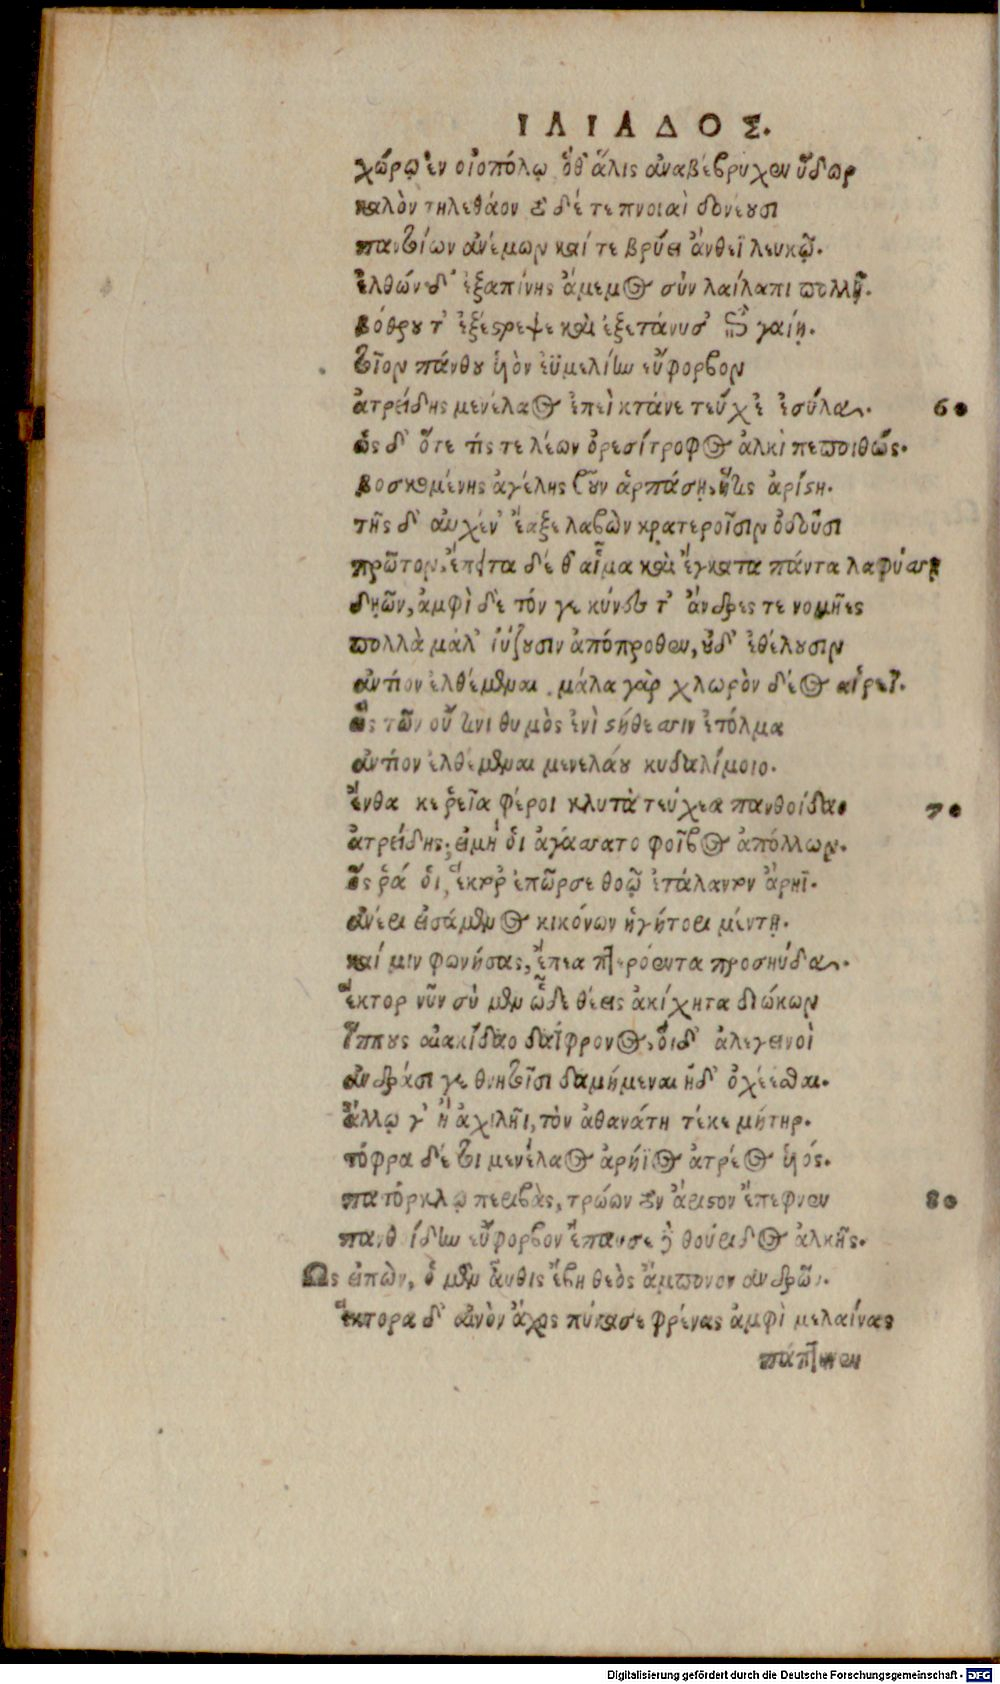 ΙΛΙΑΔΟΣ.
χώρῳ ἐν οἰοπόλῳ ὅθ' ἅλις ἀναβέβρυχεν ὕδωρ
καλὸν τηλεθάον τὸ δέ τε πνοιαὶ δονέουσι
παντοίων ἀνέμων καί τε βρύει ἄνθεϊ λευκῷ.
ἐλθών δ' ἐξαπίνης ἄνεμος σὺν λαίλαπι πολλῇ.
βόθρου τ' ἐξέστρεψε καὶ ἐξετάνυσ' ἐπὶ γαίῃ.
τοῖον πάνθου υἱὸν ἐϋμελίην εὔφορβον
ἀτρείδης μενέλαος ἐπεὶ κτάνε τεύχε' ἐσύλα. 60
ὡς δ' ὅτε τίς τε λέων ὀρεσίτροφος ἀλκὶ πεποιθώς.
βοσκομένης ἀγέλης βοῦν ἁρπάσῃ, ἥτις ἀρίστη.
τῆς δ' αὐχέν' ἔαξε λαβὼν κρατεροῖσιν ὀδοῦσι
πρῶτον, ἔπειτα δέ θ' αἷμα καὶ ἔγκατα πάντα λαφύσσει
δηῶν, ἀμφὶ δὲ τόν γε κύνες τ' ἄνδρες τε νομῆες
πολλὰ μάλ' ἰύζουσιν ἀπόπροθεν, οὐδ' ἐθέλουσιν
ἀντίον ἐλθέμεναι. μάλα γὰρ χλωρὸν δέος αἱρεῖ.
ὣς τῶν οὔ τινι θυμὸς ἐνὶ στήθεσσιν ἐτόλμα
ἀντίον ἐλθέμεναι μενελάου κυδαλίμοιο.
ἔνθα κε ῥεῖα φέροι κλυτὰ τεύχεα πανθοίδαο 70
ἀτρείδης, εἰ μή οἱ ἀγάσσατο φοῖβος ἀπόλλων.
ὅς ῥά οἱ, ἕκτορ' ἐπῶρσε θοῷ ἀτάλαντον ἄρηϊ.
ἀνέρι εἰσάμενος κικόνων ἡγήτορι μέντῃ.
καί μιν φωνήσας, ἔπεα πτερόεντα προσηύδα.
ἕκτορ νῦν σὺ μὲν ὧδε θέεις ἀκίχητα διώκων
ἵππους αἰακίδαο δαΐφρονος, οἱ δ' ἀλεγεινοὶ
ἀνδράσι γε θνητοῖσι δαμήμεναι ἠδ' ὀχέεσθαι.
ἄλλῳ γ' ἢ ἀχιλῆι, τὸν ἀθανάτη τέκε μήτηρ.
τόφρα δέ τοι μενέλαος ἀρήϊος ἀτρέος υἱός.
πατρόκλῳ περιβὰς, τρώων τὸν ἄριστον ἔπεφνεν 80
πανθοίδην εὔφορβον ἔπαυσε δὲ θούριδος ἀλκῆς.
Ως εἰπὼν, ὁ μὲν αὖθις ἔβη θεὸς ἀμπονον ἀνδρῶν.
ἕκτορα δ' αἰνὸν ἄχος πύκασε φρένας ἀμφὶ μελαίνας
πάπτηνεν
Digitalisierung gefördert durch die Deutsche Forschungsgemeinschaft - DFG